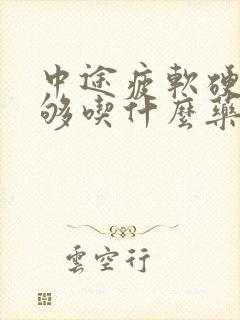 中途疲軟硬
够喫什麼藥
雲空行